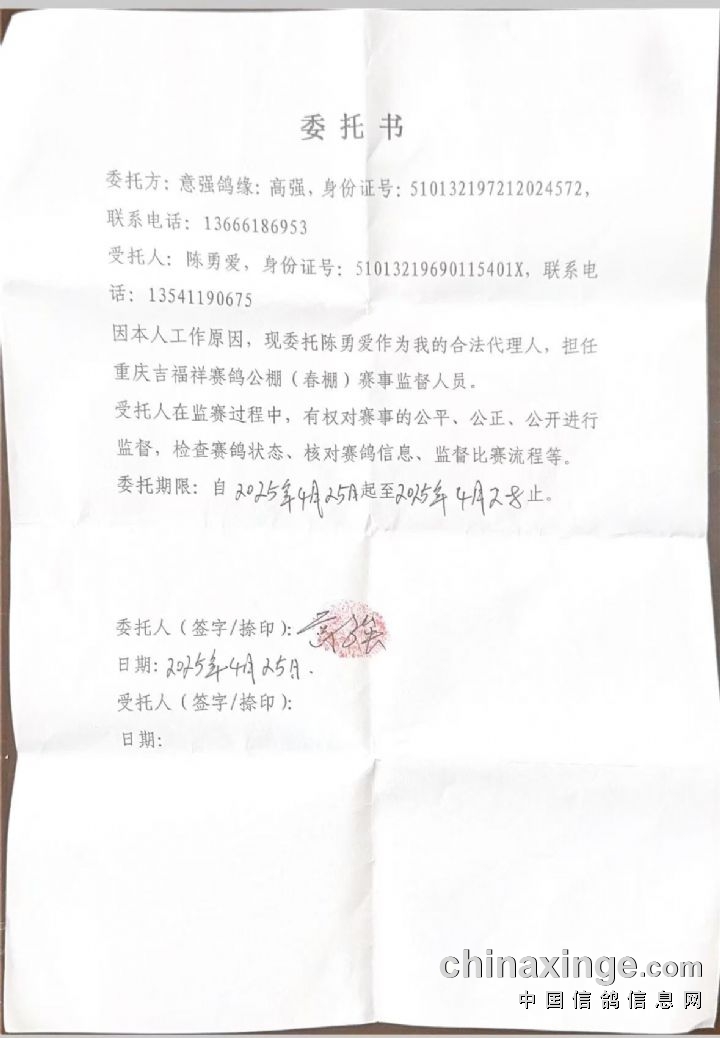 委托书
委托方：意强鸽缘：高强，身份证号：510132197212024572，
联系电话：13666186953
受托人：陈勇爱，身份证号：51013219690115401X，联系电
话：13541190675
因本人工作原因，现委托陈勇爱作为我的合法代理人，担任
重庆吉福祥赛鸽公棚（春棚）赛事监督人员。
受托人在监赛过程中，有权对赛事的公平、公正、公开进行
监督，检查赛鸽状态、核对赛鸽信息、监督比赛流程等。
委托期限：自 2025年4月25日起至2025年4月28止。
委托人（签字/捺印）：高强
日期：2025年4月25日.
受托人（签字/捺印）：
日期：
chinaxinge.com
中国信鸽信息网